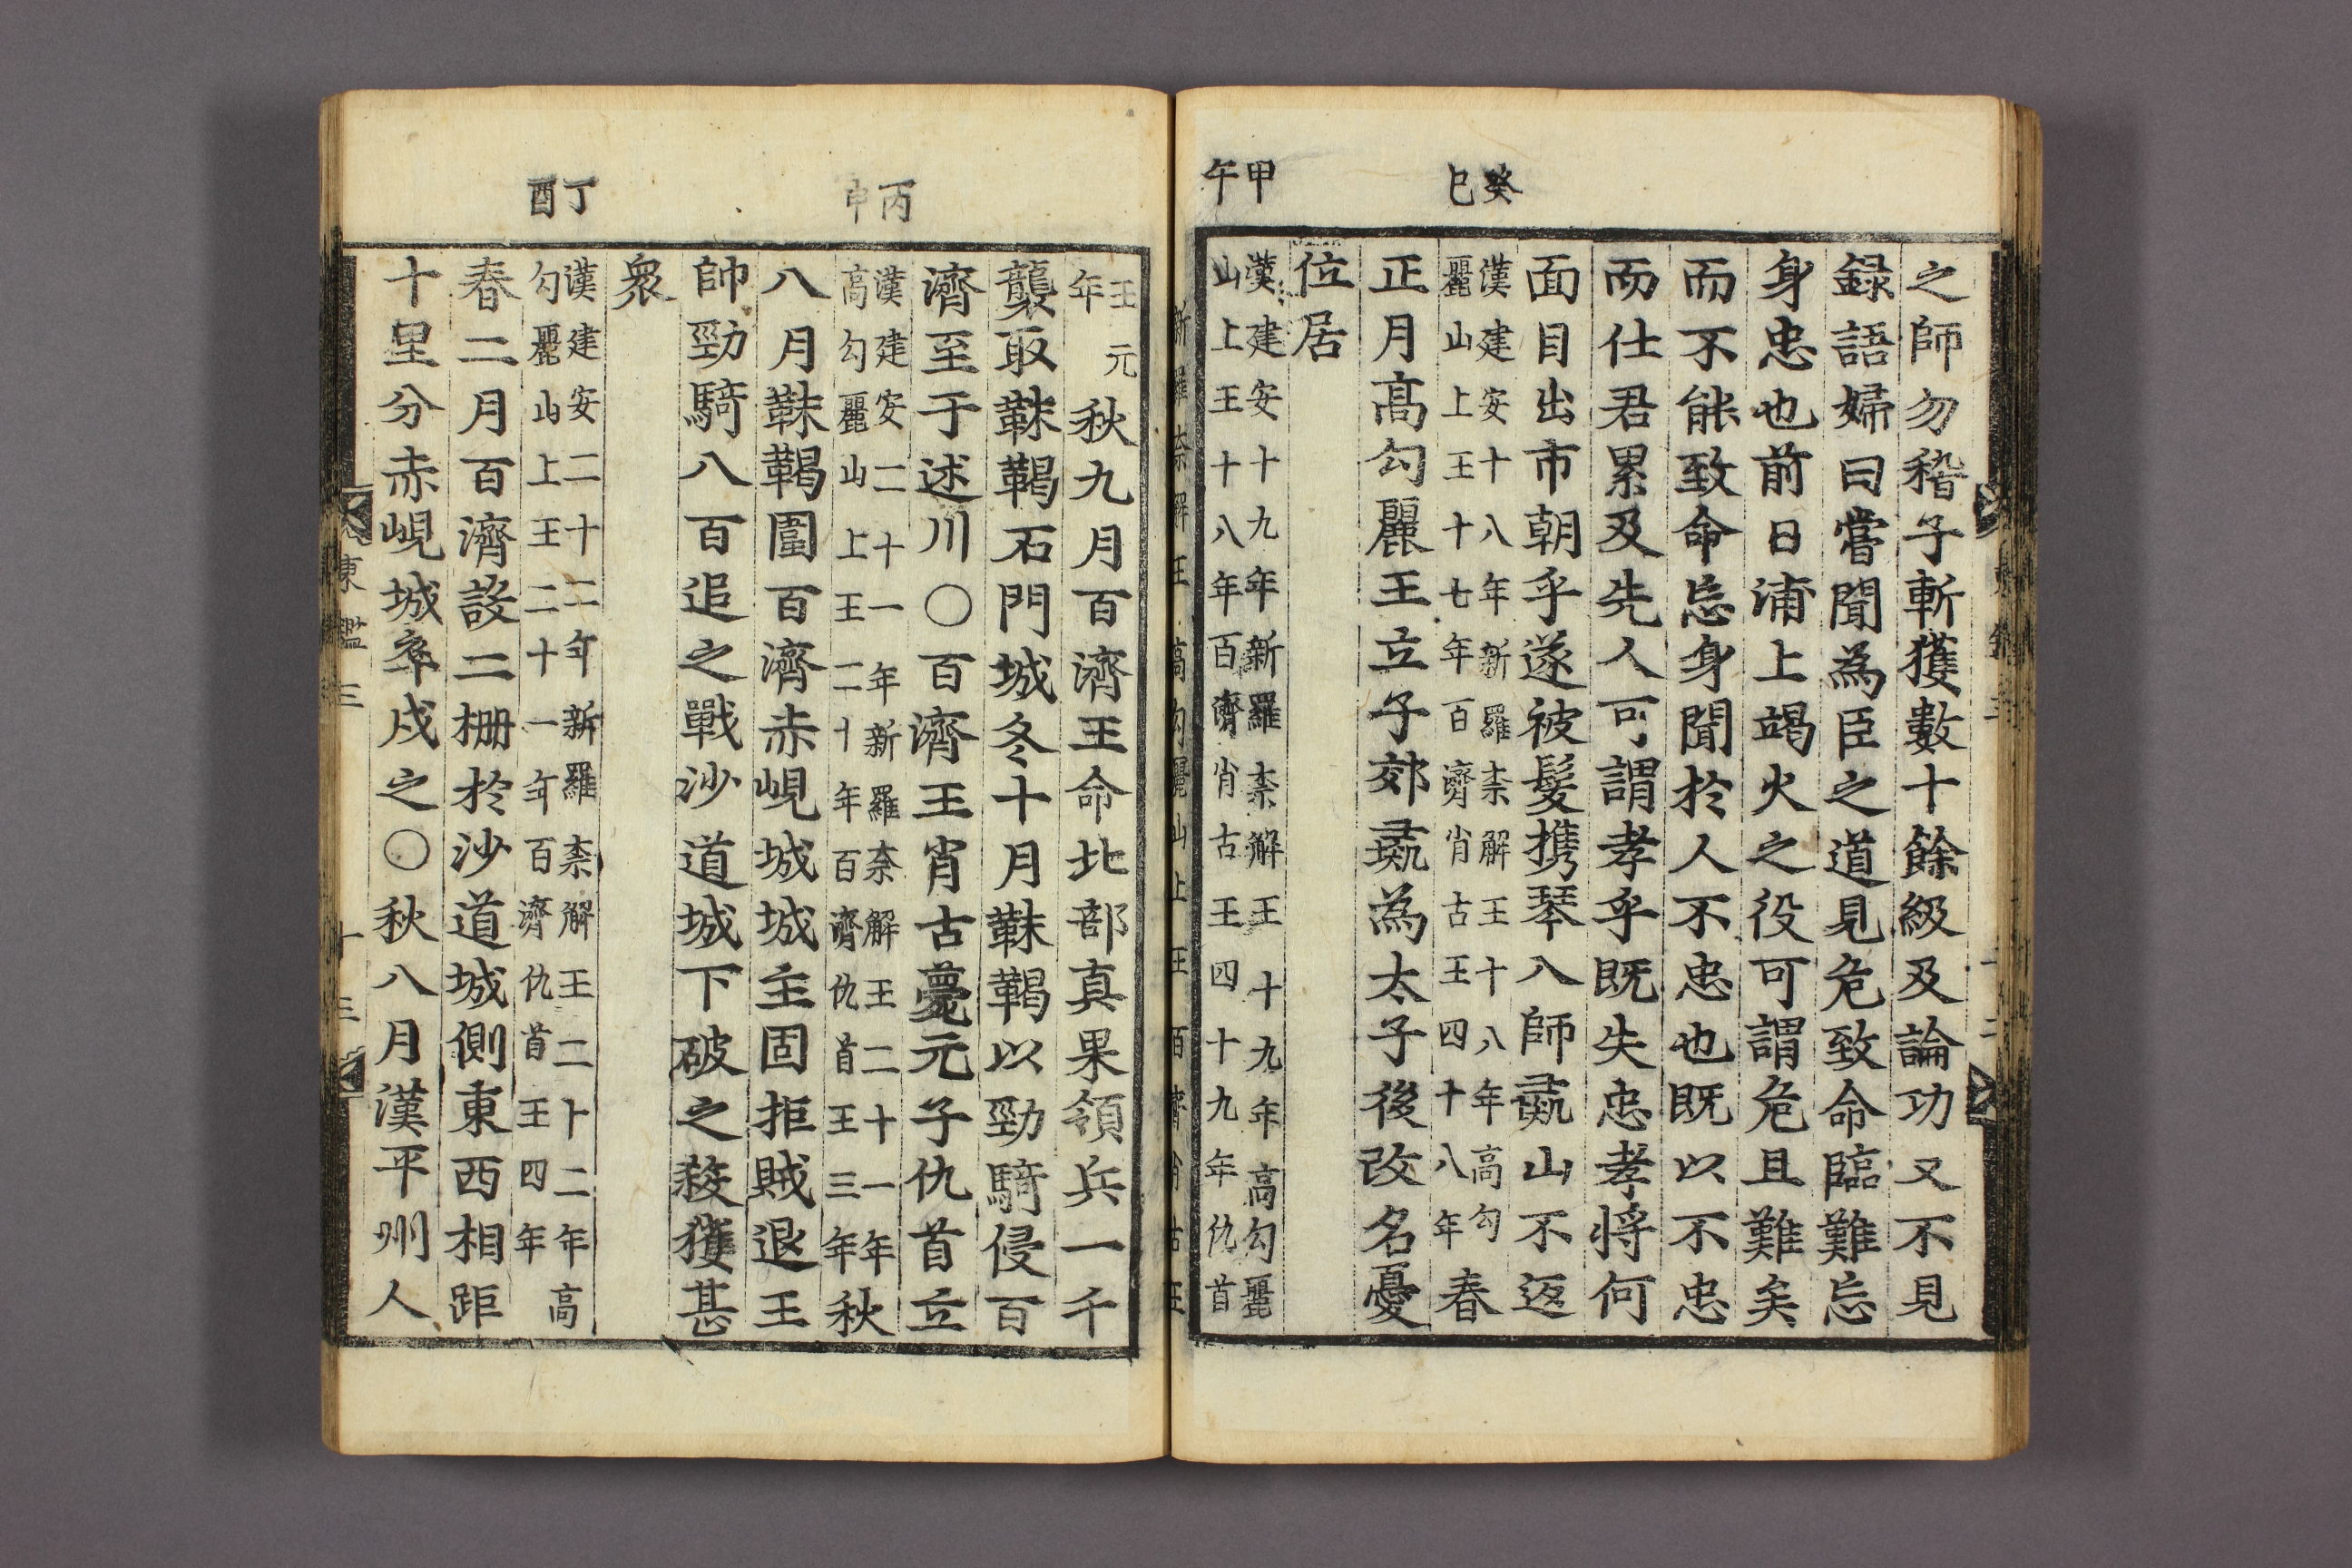 癸巳
甲午
之師勿稽子斬獲數十餘級及論功又不見
録語婦曰嘗聞為臣之道見危致命臨難忘
身忠也前日浦上竭火之役可謂危且難矣
而不能致命忘身聞於人不忠也既以不忠
而仕君累及先人可謂孝乎既失忠孝将何
面目出市朝乎遂被髮携琴入師彘山不返
漢建安十八年新羅柰解王十八年高勾
麗山上王十七年百濟肖古王四十八年
春
正月高勾麗王立子郊彘為太子後改名憂
位居
漢建安十九年新羅柰解王十九年高勾麗
山上王十八年百濟肖古王四十九年仇首
新羅奈解王 高勾麗山上王 百濟肖古王
丙申
丁酉
王元
年
秋九月百濟王命北部真果領兵一千
襲取靺鞨石門城冬十月靺鞨以勁騎侵百
濟至于述川○百濟王肖古薨元子仇首立
漢建安二十一年新羅奈解王二十一年
高勾麗山上王二十年百濟仇首王三年
秋
八月靺鞨圍百濟赤峴城城主固拒賊退王
帥勁騎八百追之戰沙道城下破之殺獲甚
衆
漢建安二十二年新羅柰解王二十二年高
勾麗山上王二十一年百濟仇首王四年
春二月百濟設二柵於沙道城側東西相距
十里分赤峴城卒戍之○秋八月漢平州人
東鑑三
十三